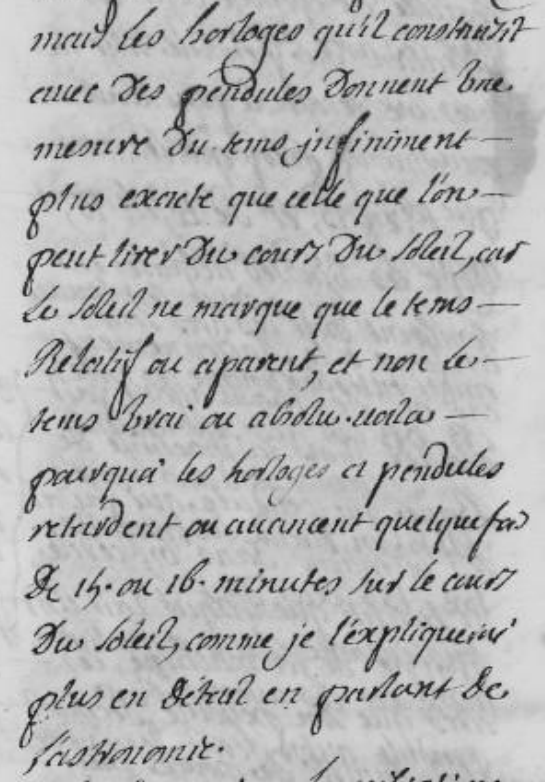 mais les horloges qu'il construisit
avec des pendules donnent une
mesure du tems infiniment
plus exacte que celle que l'on
peut tirer du cours du soleil, car
le soleil ne marque que le tems
Relatif ou aparent, et non le
tems vrai ou absolu. voila
pourquoi les horloges a pendules
retardent ou avancent quelquefois
de 15. ou 16. minutes sur le cours
du soleil, comme je l'expliquerai
plus en détail en parlant de
l'astronomie.